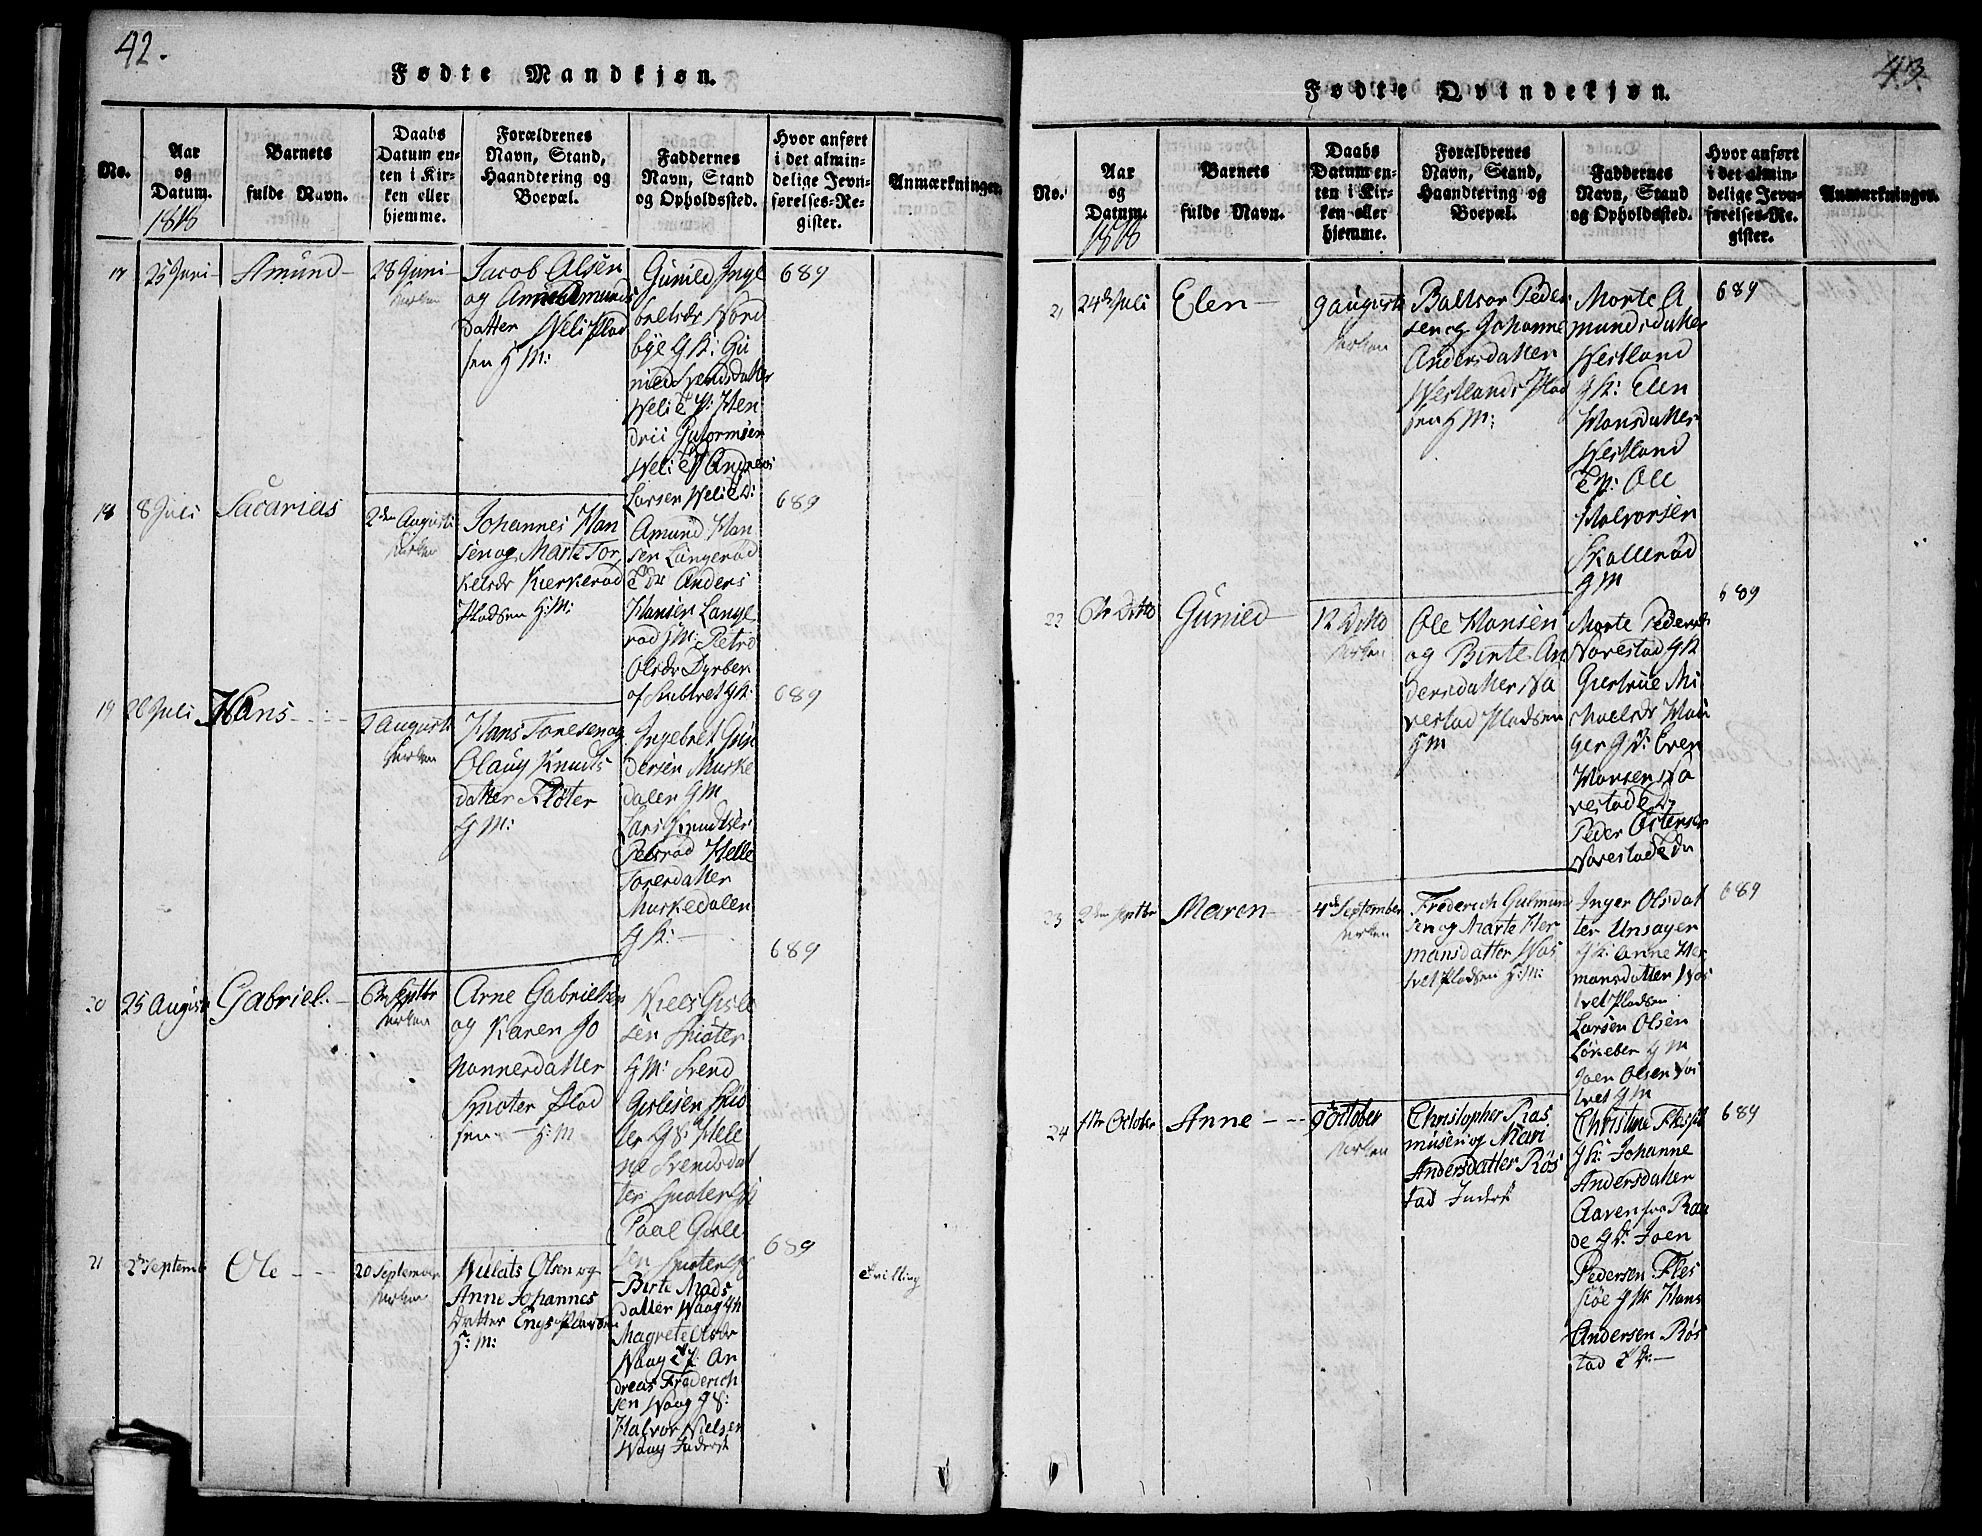 42.
Fødte Mandkjøn.
No.
Aar
og
Datum.
1818
Barnets
fulde Navn.
Daabs
Datum en-
ten i Kir-
ken eller
hjemme.
Forældrenes
Navn, Stand,
Haandtering og
Boepæl.
Faddernes
Navn, Stand
og Opholdssted.
Hvor anført
i det almin-
delige Jevn-
førelses-Re-
gister.
Anmærkninger.
17
25 Juni
Amund
28 Juni
Kirken
Jacob Olsen
og Anne Amunds
datter Weli Plad
sen H M:
Gunild Inge
borelsdr Nord
bye G K: Gu
nild Svendsdatter
Weli E P: Hen
drii Gutormsen
Weli E Andreas
Larsen Weli E D:
689
18
8 Juli
Sacarias
2den Augusti
Kirken
Johannes Han
sen og Marte Tor
kelsdr Kierkerød
Pladsen H: M:
Amund Han
sen Langerød
E Dr Anders
Hansen Lange
rød G M: Petro
Olsdr Dyrber
af Skibtvet G K:
689
19
26 Juli
Hans
2 Augusti
Kirken
Hans Toresen og
Olaug Knuds
datter Fløter
G M:
Ingebret Gun
dersen Muske
dalen G M
Lars Knudsen
Pelsrød Helle
Toresdatter
Muskedalen
G K:
689
20
25 August
Gabriel
6te Septbr
Kirken
Arne Gabrielsen
og Karen Jo
hannesdatter
Snoter Plad
sen H: M
Niels Gisle
sen Snoter
G M: Svend
Gislesen
ter G S: Hele
ne Svendsdat
ter Snoter
Paal Gisle
sen Snoter
689
21
2 Septemb
Ole
20 September
Kirken
Olsen og
Anne Johannes
datter Engs Pladsen
H: M:
Birte Mads
datter Waag G K
Magrete Olsdr
Waag E P: An
dreas Frederich
sen Waag G S:
Halvor Nielsen
Waag Inderst
689
Tvilling
43.
Fødte Qvindekjøn.
No.
Aar
og
Datum.
1818
Barnets
fulde Navn.
Daabs
Datum en-
ten i Kir-
ken eller
hjemme.
Forældrenes
Navn, Stand,
Haandtering og
Boepæl.
Faddernes
Navn, Stand
og Opholdssted.
Hvor anført
i det almin-
delige Jevn-
førelses-Re-
gister.
Anmærkninger.
21
24de Juli
Elen
9 Augusti
Kirken
Baltsor Peder
sen og Johanne
Andersdatter
Westlands Plad
sen H M:
Marte A
mundsdatter
Westland
G K: Elen
Hansdatter
Westland
E P: Ole
Halvorsen
Skallerød
G M
689
22
6te Ditto
Gunild
12 Ditto
Kirken
Ole Hansen
og Birte An
dersdatter Na
vestad Pladsen
H M
Marte Pedersdr
Navestad G K
Giertrue Mi
kaelsdr Hau
ger G D: Even
Hansen Na
vestad E D
Peder Ostensen
Navestad E Dr
689
23
2den Septbr
Maren
4de September
Kirken
Frederich Gulmund
sen og Marte Her
mansdatter Wos
tvet Pladsen H: M:
Inger Olsdat
ter Unsager
G K: Anne Her
mansdatter Wos
tvet Pladsen
Larsen Olsen
Løkeber G M
Joen Olsen Wos
tvet G M
689
24
1ste October
Anne
9 October
Kirken
Christopher Ras
musen og Mari
Andersdatter Røs
tad Inderst
Christine
G K: Johanne
Andersdatter
Aaven fra Raa
de G D: Joen
Pedersen Fles
siøe G M: Hans
Andersen Røs
tad E D:
689